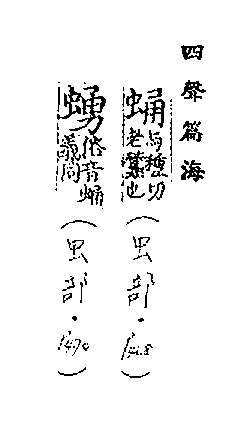 四聲篇海
蛹与種切老蠶也(虫部·1468)
𧊵俗音蛹義同(虫部·1470)